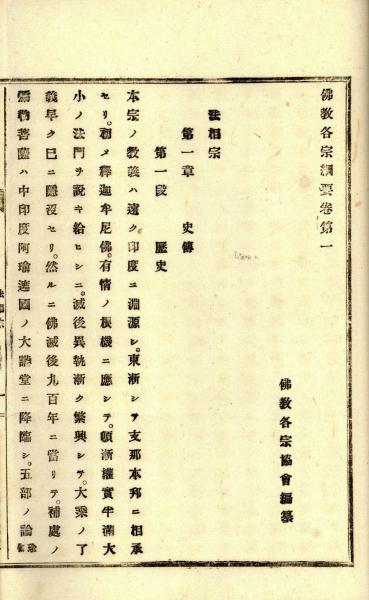 佛教各宗綱要卷第一
佛教各宗協會編纂
法相宗
第一章　史傳
第一段　歷史
本宗ノ教義ハ遠ク印度ニ淵源シ。東漸シテ支那本邦ニ相承
セリ。初メ釋迦牟尼佛。有情ノ根機ニ應シテ。頓漸權實半滿大
小ノ法門ヲ説キ給ヒシニ。滅後異執漸ク繁興シテ。大乘ノ了
義早ク巳ニ隱沒セリ。然ルニ佛滅後九百年ニ當リテ。補處ノ
彌勒菩薩ハ中印度阿瑜遮國ノ大講堂ニ降臨シ。五部ノ論